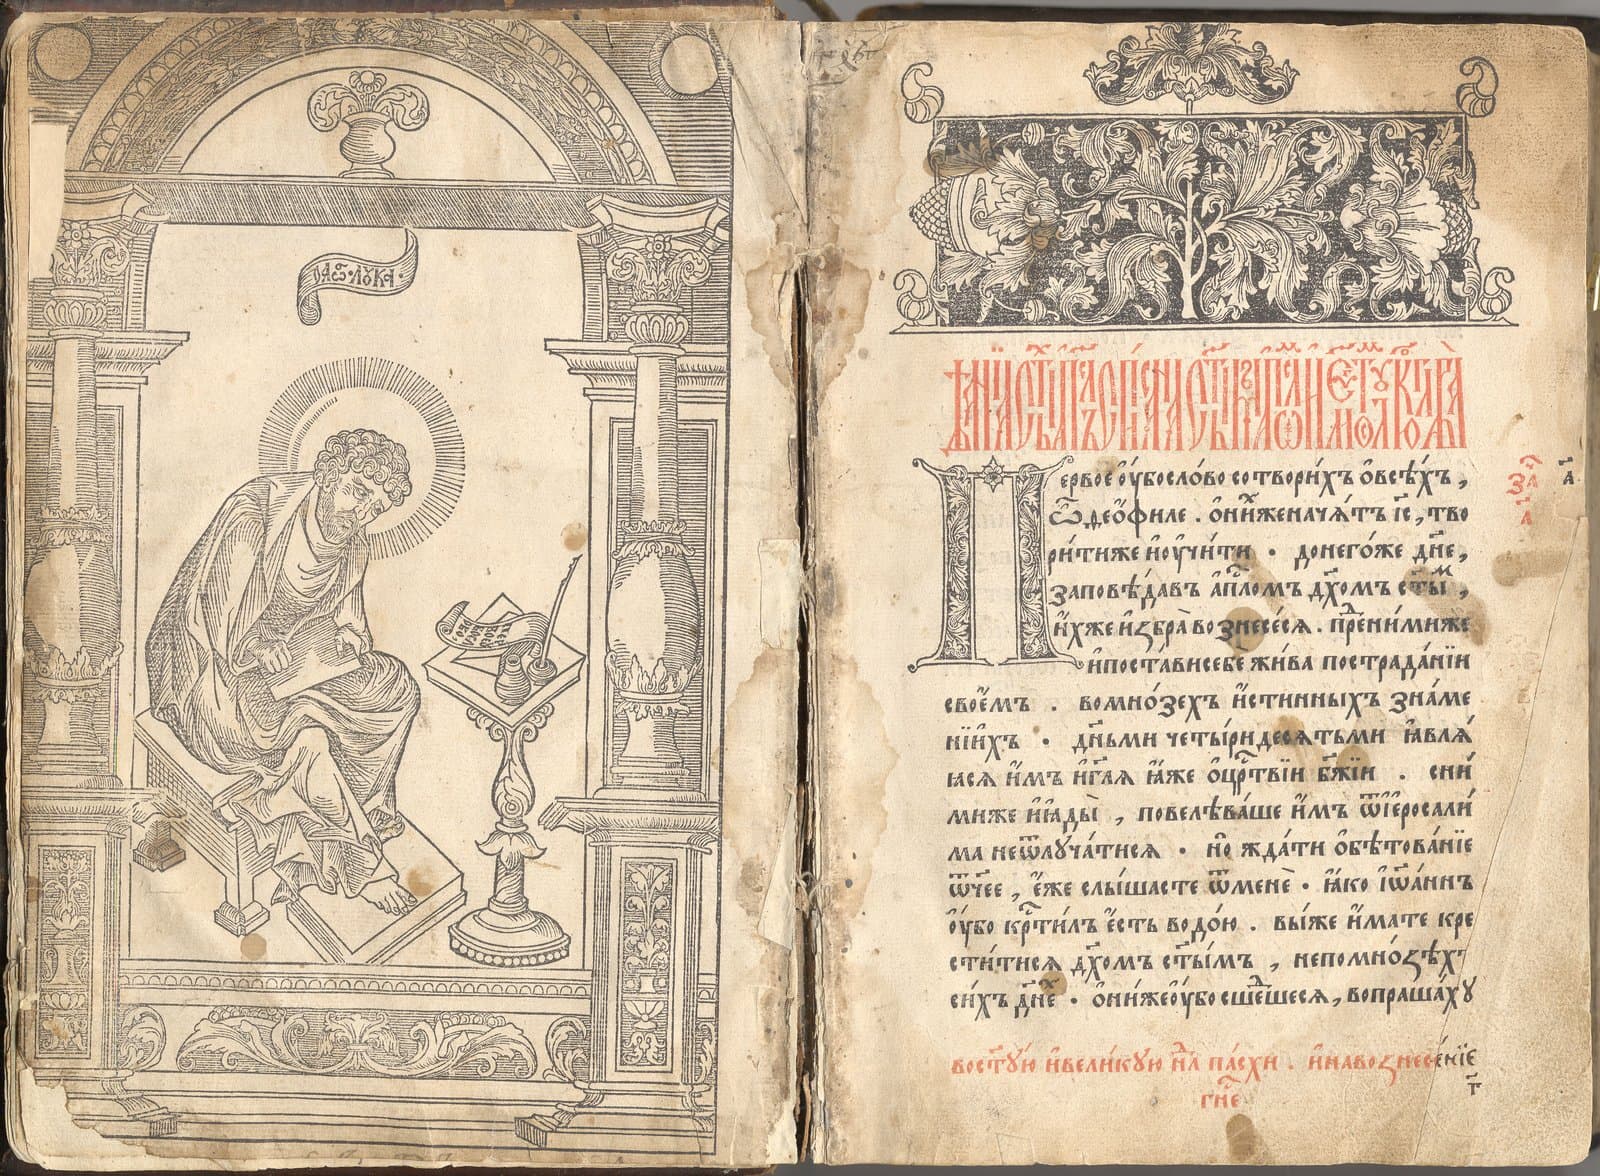 ОАѠ· ЛꙊКА·
ПЕР
ВОЕ
ꙊБО
СЛО
ВО:
ервое ѹ҆бо сло́во сотвори́хъ ѻ҆всѣ́хъ ,
ѽдеѻ҆́филе . ѻ҆ни́хженача́тъ і҆с҃ , тво
ри́тиже и҆ѹ҆чи́ти · донего́же дн҃е ,
заповѣ́давъ а҆пⷭ҇ломъ дх҃омъ ст҃ыⷨ ,
и҆́хже и҆збра̀ вознесе́сѧ . преⷣними́же
и҆поста́висебе жи́ва пострада́нїи
свое́мъ . во мно́зехъ и҆́стинныхъ зна́ме
нїи҆хъ · дн҃ьми четы́ридесѧтьми ꙗ҆влѧ́
ꙗсѧ и҆̀мъ и҆гл҃ѧ ꙗ҆́же ѻ҆црⷭ҇твїи бж҃їи . сни́
миже и҆ꙗ҆ды̀ , повелѣва́ше и҆̀мъ ѿі҆еросали́
ма неѿлꙋча́тисѧ · но жда́ти ѻ҆бѣтова́нїе
ѿч҃ее , є҆́же слы́шасте ѿменѐ · ꙗ҆́ко і҆ѡа́ннъ
ѹ҆́бо крⷭ҇тилъ є҆́сть водо́ю . вы́же и҆́мате кре
сти́тисѧ дх҃омъ ст҃ы́мъ , непомно́зѣхъ
си́хъ дн҃еⷯ · ѻ҆ни́жеѹ҆бо сше́дⷣшесѧ , вопраша́хꙋ
востꙋ́ю и҆вели́кꙋю нⷣлѧ па́схи . и҆навознесе́нїе
гн҃е
заⷱ҇
а҃
а҃